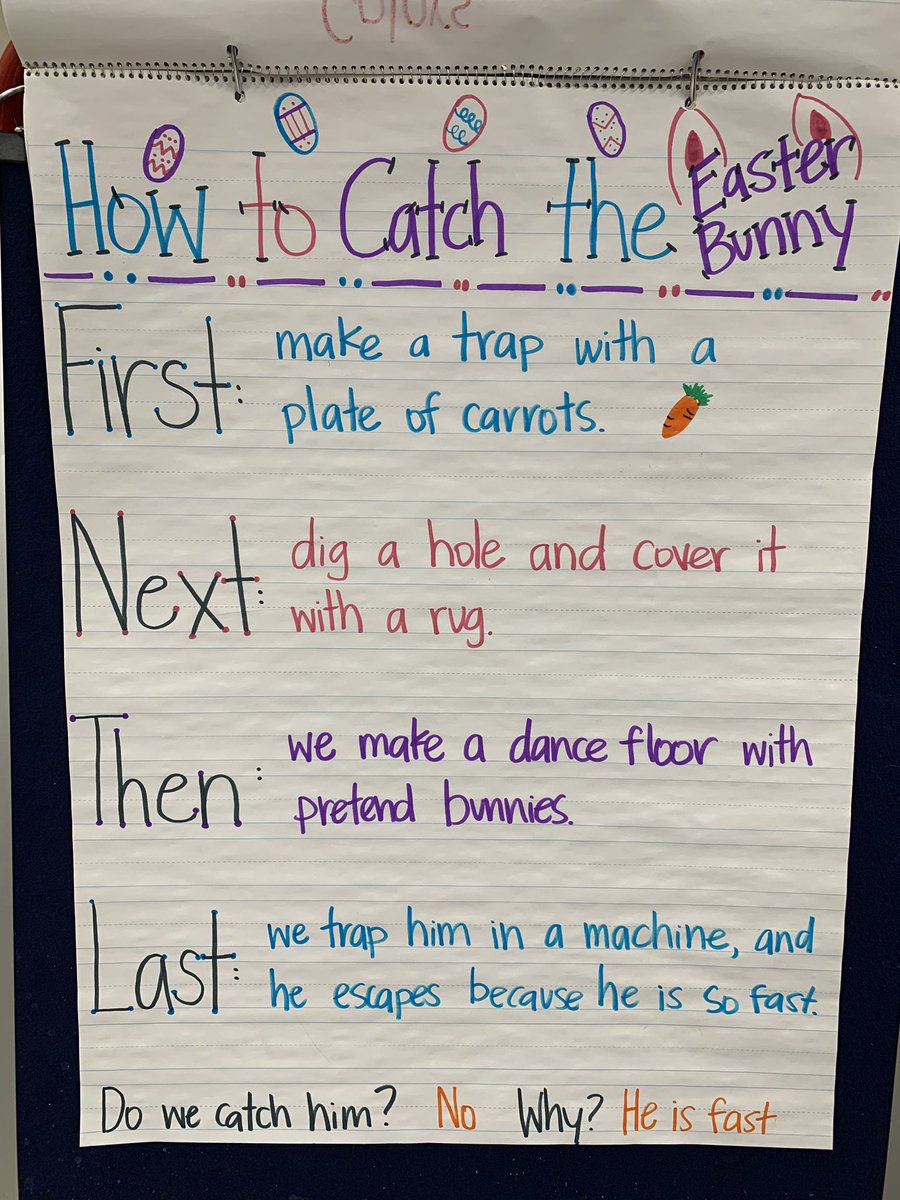 Colors
How to Catch the Easter
Bunny
First: make a trap with a
plate of carrots.
Next: dig a hole and cover it
with a rug.
Then: we make a dance floor with
pretend bunnies.
Last: we trap him in a machine, and
he escapes because he is so fast.
Do we catch him? No Why? He is fast